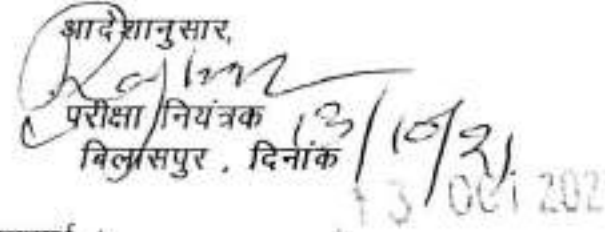 आदेशानुसार,
परीक्षा नियंत्रक
बिलासपुर , दिनांक 13/10/21
13 OCT 202